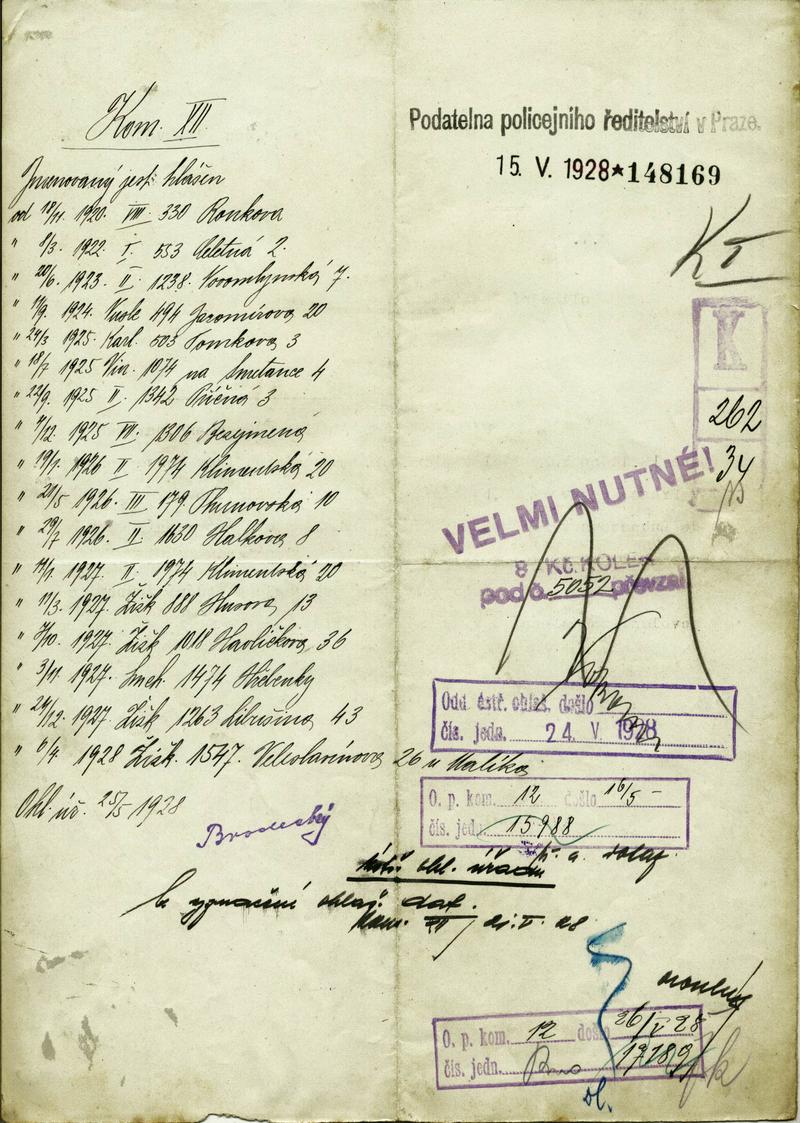 Kom. XII.
Jmenovaný jest hlášen
od 18/11 1920. VIII. 330 Ronkova
" 8/3. 1922 I. 553 Celetná 2.
" 20/6. 1923. II. 1238. Novomlýnská 7.
" 17/9. 1924. Nusle 494 Jaromírova 20
" 24/3 1925. Karl. 503 Tomkova 3
" 18/7 1925 Vin. 1074 na Smetance 4
" 22/9. 1925 II. 1342 Příčná 3
" 7/12. 1925 VII. 1306 Bezejmená
" 19/1. 1926 II 1974 Klimentská 20
" 20/5 1926. III 179 Thunovská 10
" 29/7 1926. II. 1630 Hálkova 8
" 1927. II. 1974 Klimentská 20
" 17/3. 1927. Žižk 888 Husova 13
" 3/10. 1927. Žižk 1018 Havlíčkova 36
" 3/11. 1927. Smích. 1474 Hřebenky
" 24/12. 1927. Žižk 1263 Libušina 43
" 6/4. 1928 Žižk. 1547. Veleslavínova 26 u Malíka
Ohl. úř. 25/5 1928
Brodecký
Podatelna policejního ředitelství v Praze.
15. V. 1928*148169
K I
K
262
34
VELMI NUTNÉ!
8 Kč. KOLEK
pod č. 5052 převzal
Odd. ústř. ohlaš. došlo
čís. jedn. 24. V. 1928
O. p. kom. 12 došlo 16/5 -
čís. jed. 15988
ohl. úřadu
k vyznačení ohlaš. dat.
Kom. XII 21.V. 28
O. p. kom. 12 došlo 26/V 28
čís. jedn. 17189